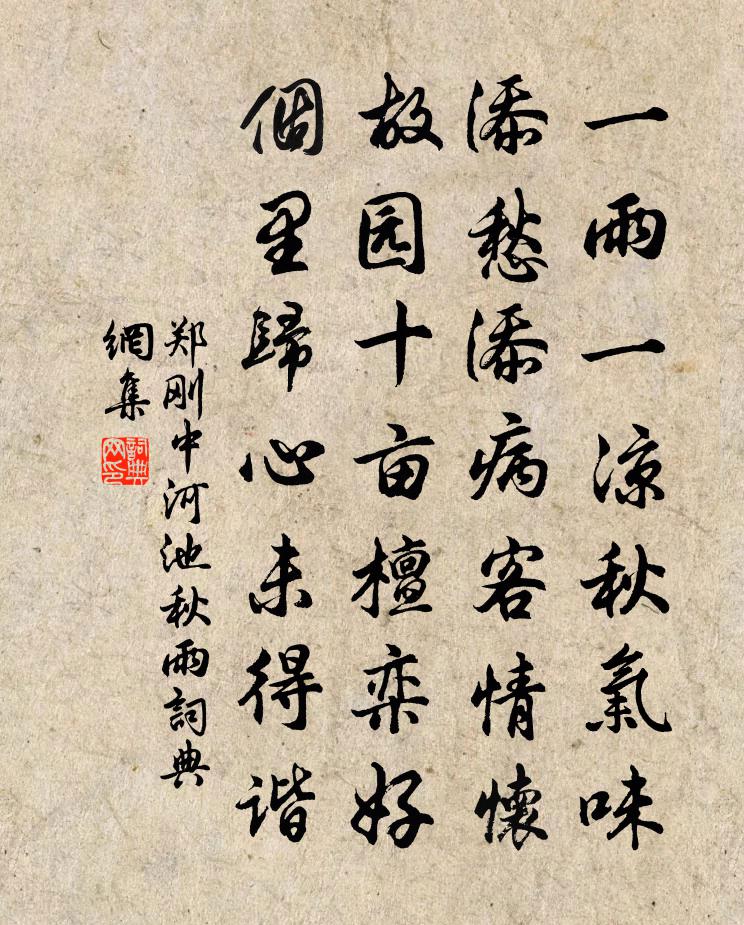 一雨一凉秋氣味
添愁添病客情懷
故园十亩檀栾好
個里歸心未得谐
郑刚中河池秋雨詞典
網集
詞典網印